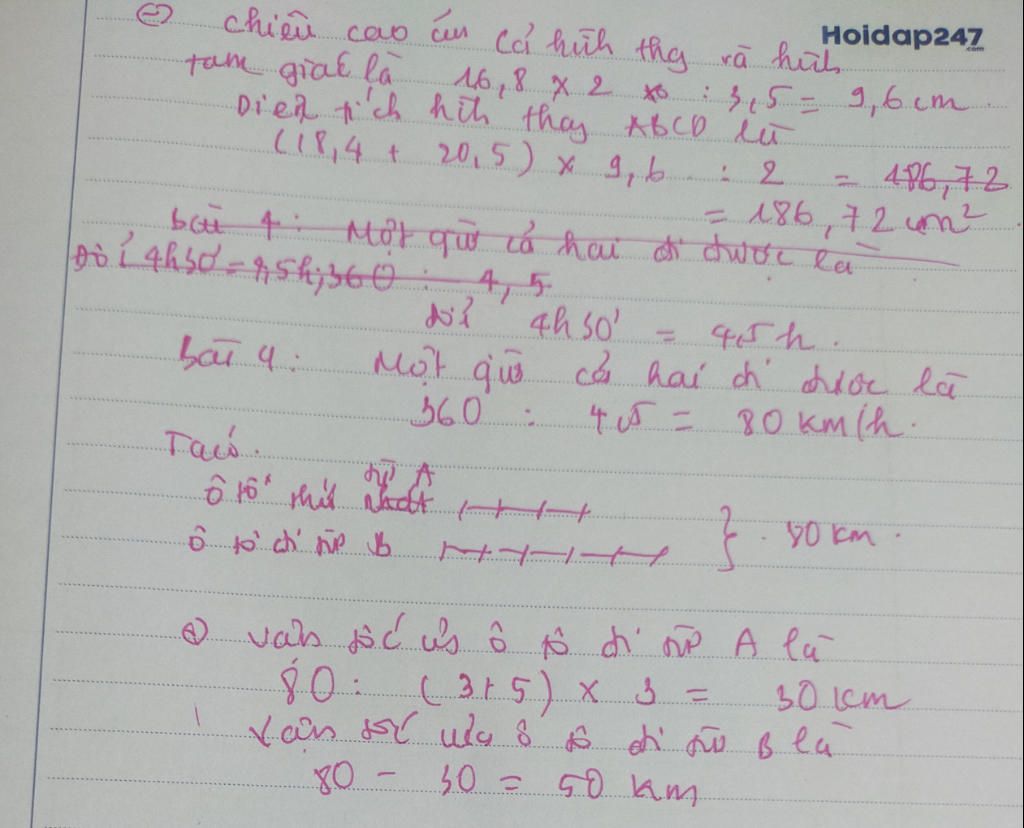 => chiều cao của cả hình thg và hình
Hoidap247
.com
tam giác là 16,8 x 2 : 3,5 = 9,6 cm.
Diện tích hình thag ABCD là
(18,4 + 20,5) x 9,6 : 2 = 186,72
= 186,72 cm²
bài 4: Một giờ cả hai đi được là
Đổi 4h30' = 4,5h; 360 : 4,5
đổi 4h30' = 4,5h.
bài 4: Một giờ cả hai đi được là
360 : 4,5 = 80 km/h.
Ta có.
từ A
ô tô thứ nhất
ô tô đi từ B } 80 km.
vận tốc của ô tô đi từ A là
80 : (3+5) x 3 = 30 km
Vận tốc của ô tô đi từ B là
80 - 30 = 50 km